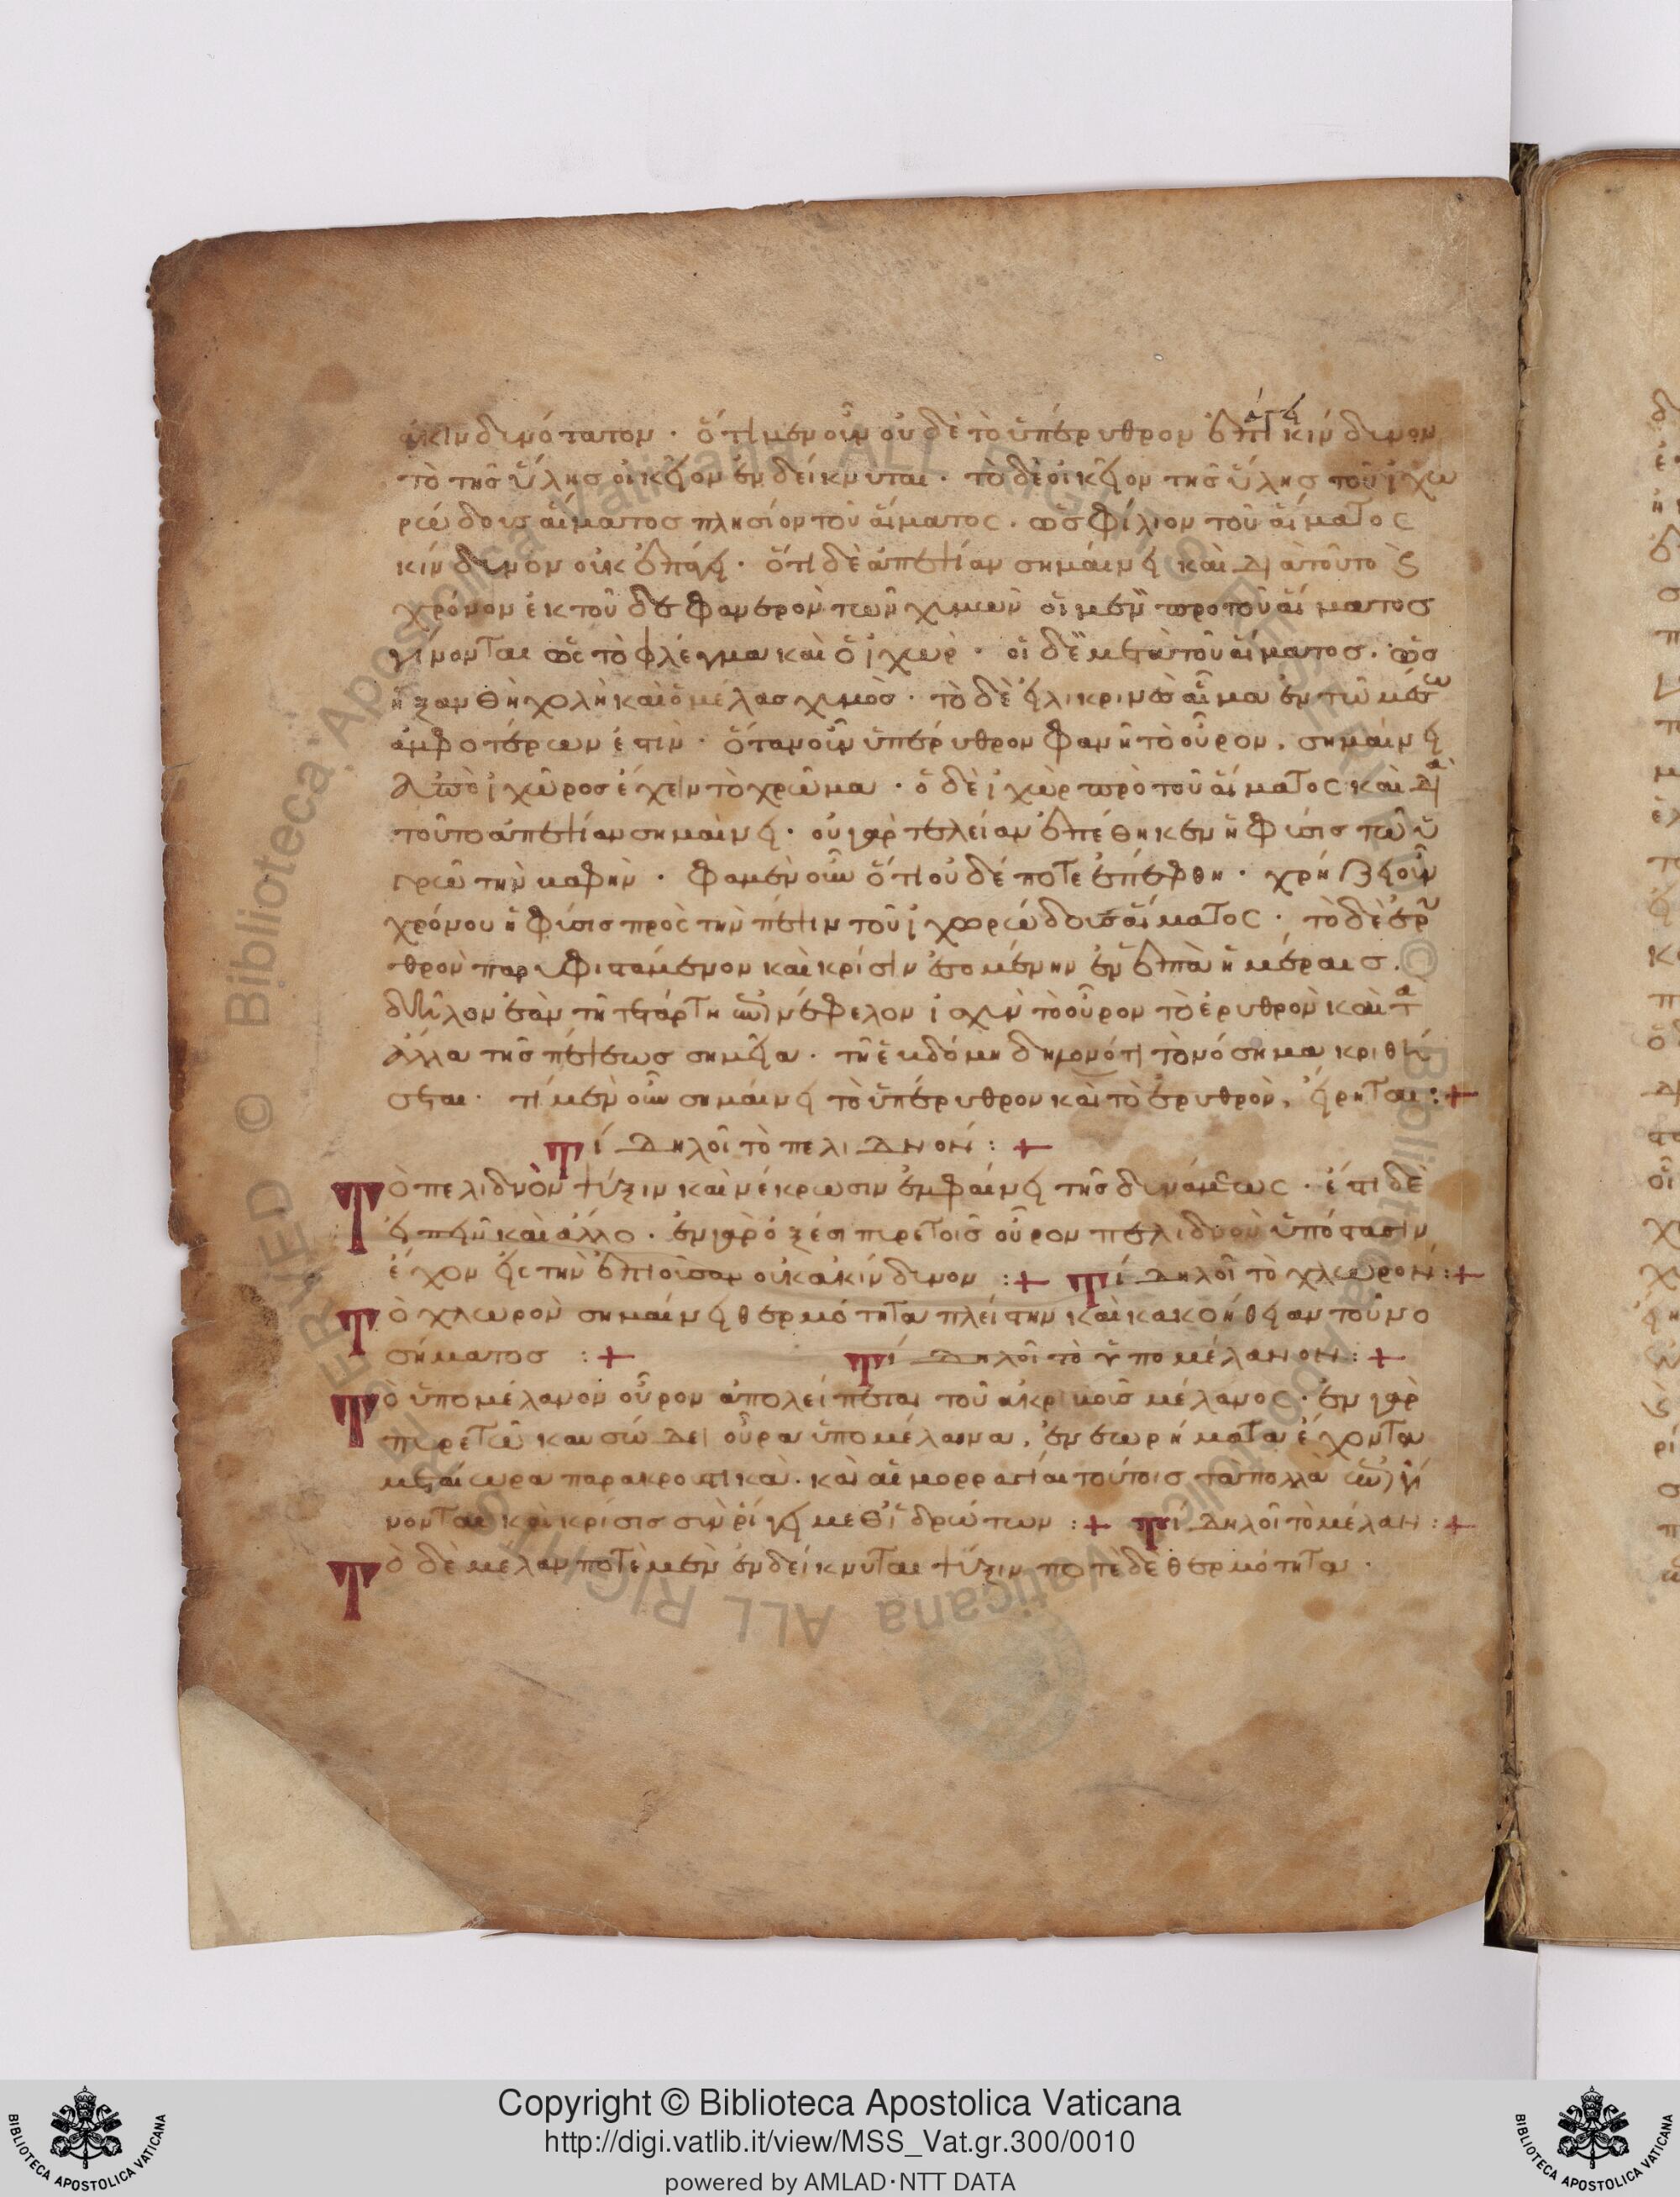 ἀκινδυνότατον · ὅτι μὲν οὖν οὐδὲ τὸ ὑπέρυθρον ἐπικίνδυνον
τὸ τῆς ὕλης οἰκεῖον ἐνδείκνυται · τὸ δὲ οἰκεῖον τῆς ὕλης τοῦ ἰχω
ρώδους αἵματος πλησίον τοῦ αἵματος · ὡς φίλιον τοῦ αἵματος
κίνδυνον οὐκ ἐπάγει · ὅτι δὲ ἀπεψίαν σημαίνει καὶ διατοῦτο
χρόνον ἐκ τοῦδε φανερὸν τῶν χυμῶν οἱ μὲν προ τοῦ αἵματος
γίνονται ὡς τὸ φλέγμα καὶ ὁ ἰχωρ · οἱ δὲ μετὰ τοῦ αἵματος · ὡς
ἡ ξανθὴ χολὴ καὶ ὁ μέλας χυμὸς · τὸ δὲ εἰλικρινὲς αἷμα ἐν τῶ μέσω
ἀμφοτέρων ἐστὶν · ὅταν οὖν ὑπέρυθρον φανῆ τὸ οὖρον, σημαίνει
ἀπὸ ἰχῶρος ἔχειν τὸ χρῶμα · ὁ δὲ ἰχὼρ πρὸ τοῦ αἵματος καὶ διὰ
τοῦτο ἀπεψίαν σημαίνει · οὐ γὰρ τελείαν ἐπέθηκεν ἡ φύσις τῶ ὑ
γρῶ τὴν βαφὴν · φαμὲν οὖν ὅτι οὐδέποτε ἐπέφθη · χρήζει οὖν
χρόνου ἡ φύσις πρὸς τὴν πέψιν τοῦ ἰχωρώδους αἵματος · τὸ δὲ ἐρυ
θρὸν παρυφιστάμενον καὶ κρίσιν ἐσομένην ἐν ἑπτὰ ἡμέραις.
δῆλον ἐὰν τῆ τετάρτη νέφελον ἰσχὺν τὸ οὖρον τὸ ἐρυθρὸν καὶ τὰ
ἄλλα τῆς πέψεως σημεῖα · τῆ ἑβδόμη δηλονότι τὸ νόσημα κριθή
σεται · τί μὲν οὖν σημαίνει τὸ ὑπέρυθρον καὶ τὸ ἐρυθρὸν, εἴρηται :+
Τί δηλοῖ τὸ πελιδνόν :+
Τὸ πελιδνὸν ψύξιν καὶ νέκρωσιν ἐμφαίνει τῆς δυνάμεως · ἔστι δὲ
εἰπεῖν καὶ ἄλλο · ἐν γὰρ ὀξέσι πυρετοῖς οὖρον πελιδνὸν ὑπόστασιν
ἔχον εἰς τὴν ἐπιοῦσαν οὐκ ἀκίνδυνον :+ Τί δηλοῖ τὸ χλωρόν :+
Τὸ χλωρὸν σημαίνει θερμότητα πλείστην καὶ κακοήθειαν τοῦ νο
σήματος :+ Τί δηλοῖ τὸ ὑπομέλανον :+
Τὸ ὑπομέλανον οὖρον ἀπολείπεται τοῦ ἀκριβοῦς μέλανος · ἐν γὰρ
πυρετῶ καυσώδει οὖρα ὑπομέλανα, ἐνεωρήματα ἔχοντα
μεταίωρα παρακρουστικὰ · καὶ αἱμορραγίαι τούτοις τὰ πολλὰ γί
νονται καὶ κρίσις σὺν ῥίγει μεθ' ἱδρώτων :+ Τί δηλοῖ τὸ μέλαν :+
Τὸ δὲ μέλαν ποτὲ μὲν ἐνδείκνυται ψύξιν ποτὲ δὲ θερμότητα ·
Copyright © Biblioteca Apostolica Vaticana
http://digi.vatlib.it/view/MSS_Vat.gr.300/0010
powered by AMLAD·NTT DATA